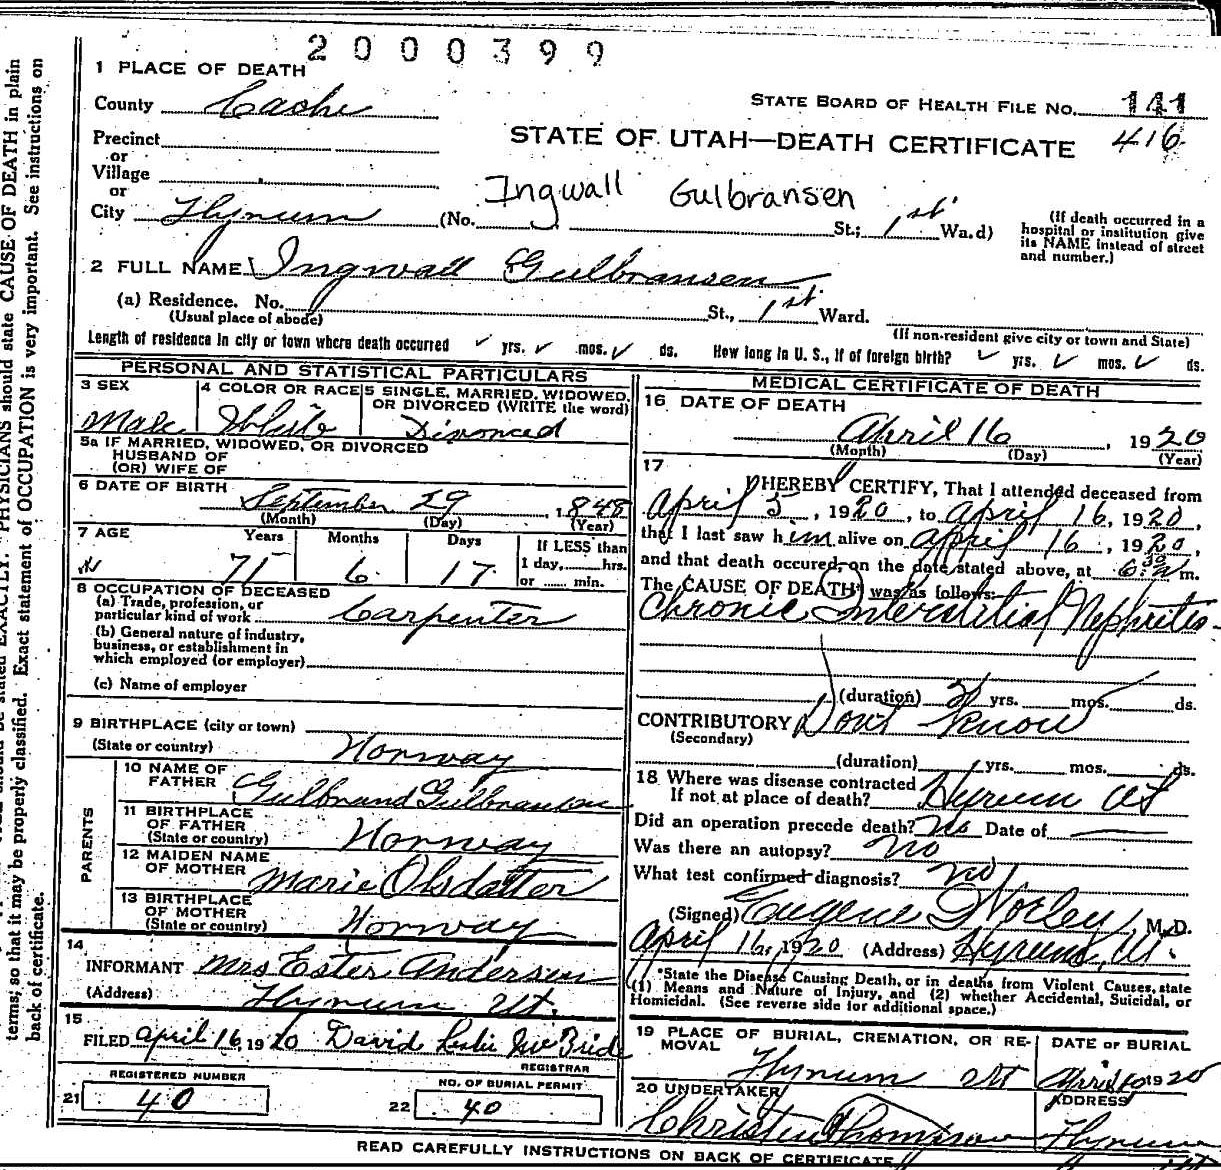 2000399
1 PLACE OF DEATH
County Cache
STATE BOARD OF HEALTH FILE NO. 111
416
STATE OF UTAH—DEATH CERTIFICATE
Precinct
or
Village
or
City Hyrum (No. St.; 1st Wa.d)
Ingwall Gulbransen
(If death occurred in a
hospital or institution give
its NAME instead of street
and number.)
2 FULL NAME Ingwall Gulbransen
(a) Residence. No. St., 1st Ward.
(Usual place of abode)
(If non-resident give city or town and State)
Length of residence in city or town where death occurred ✓ yrs. ✓ mos. ✓ ds. How long in U. S., if of foreign birth? ✓ yrs. ✓ mos. ✓ ds.
PERSONAL AND STATISTICAL PARTICULARS
3 SEX
Male
4 COLOR OR RACE
White
5 SINGLE, MARRIED, WIDOWED,
OR DIVORCED (WRITE the word)
Divorced
5a IF MARRIED, WIDOWED, OR DIVORCED
HUSBAND OF
(OR) WIFE OF
6 DATE OF BIRTH
September 29, 1848
(Month) (Day) (Year)
7 AGE Years Months Days
71 6 17
If LESS than
1 day, hrs.
or min.
8 OCCUPATION OF DECEASED
(a) Trade, profession, or
particular kind of work Carpenter
(b) General nature of industry,
business, or establishment in
which employed (or employer)
(c) Name of employer
9 BIRTHPLACE (city or town)
(State or country) Norway
PARENTS
10 NAME OF
FATHER Gulbrand Gulbransen
11 BIRTHPLACE
OF FATHER
(State or country) Norway
12 MAIDEN NAME
OF MOTHER Marie Olsdatter
13 BIRTHPLACE
OF MOTHER
(State or country) Norway
14
INFORMANT Mrs Ester Andersen
(Address) Hyrum Ut.
15
FILED April 16, 1920 David Leslie McBride
REGISTRAR
REGISTERED NUMBER
21 40
NO. OF BURIAL PERMIT
22 40
MEDICAL CERTIFICATE OF DEATH
16 DATE OF DEATH
April 16, 1920
(Month) (Day) (Year)
17
I HEREBY CERTIFY, That I attended deceased from
April 5, 1920, to April 16, 1920,
that I last saw him alive on April 16, 1920,
and that death occured, on the date stated above, at 6:30 m.
The CAUSE OF DEATH was as follows:
Chronic Interstitial Nephritis
(duration) yrs. mos. ds.
CONTRIBUTORY Dont Know
(Secondary)
(duration) yrs. mos. ds.
18 Where was disease contracted
If not at place of death? Hyrum Ut
Did an operation precede death? No Date of
Was there an autopsy? No
What test confirmed diagnosis? No
(Signed) Eugene Worley, M.D.
April 16, 1920 (Address) Hyrum, Ut.
*State the Disease Causing Death, or in deaths from Violent Causes, state
(1) Means and Nature of Injury, and (2) whether Accidental, Suicidal, or
Homicidal. (See reverse side for additional space.)
19 PLACE OF BURIAL, CREMATION, OR RE-
MOVAL
Hyrum Ut
DATE OF BURIAL
April 1920
20 UNDERTAKER
Christen Thomsson
ADDRESS
Hyrum
Ut
READ CAREFULLY INSTRUCTIONS ON BACK OF CERTIFICATE
EXACTLY. PHYSICIANS should state CAUSE OF DEATH in plain
terms; so that it may be properly classified. Exact statement of OCCUPATION is very important. See instructions on
back of certificate.